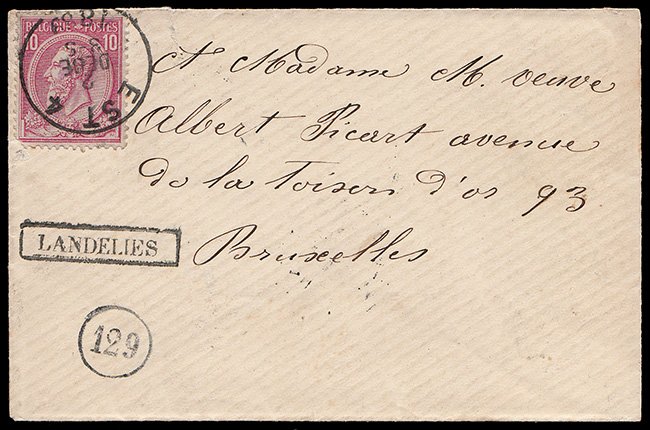 BELGIQUE POSTES
10 10
EST 4
A Madame M. veuve
Albert Picart avenue
de la Toison d'or 93
Bruxelles
LANDELIES
129